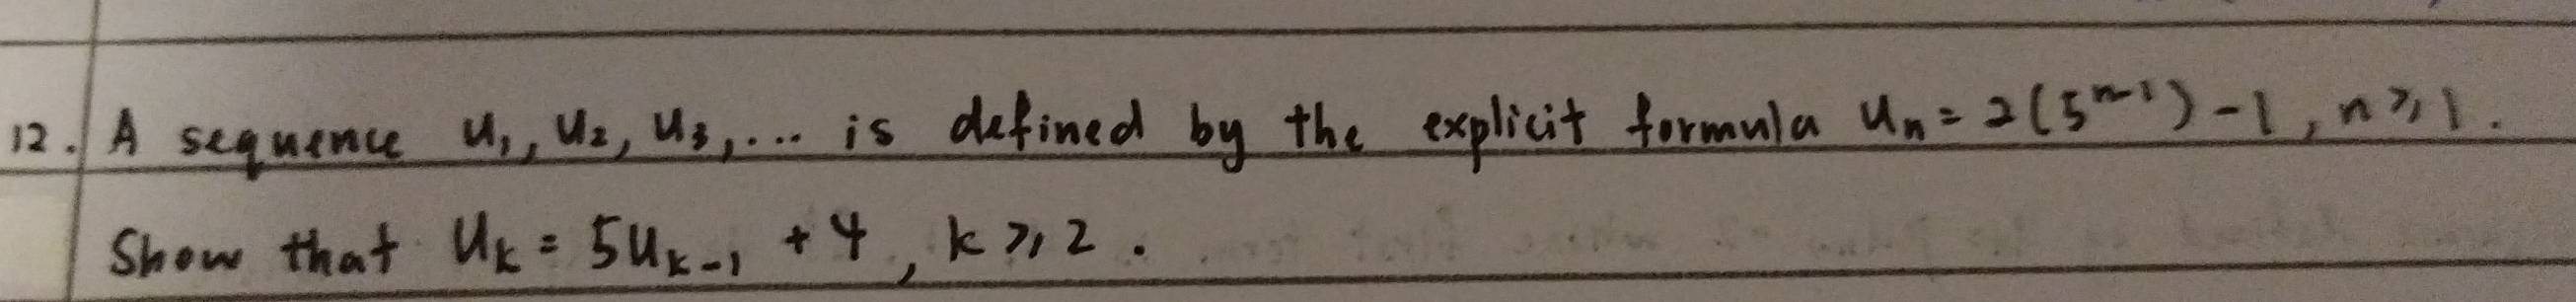 12. A sequence u₁, u₂, u₃, ... is defined by the explicit formula uₙ = 2(5ⁿ⁻¹) - 1, n ≥ 1.
Show that uₖ = 5uₖ₋₁ + 4, k ≥ 2.